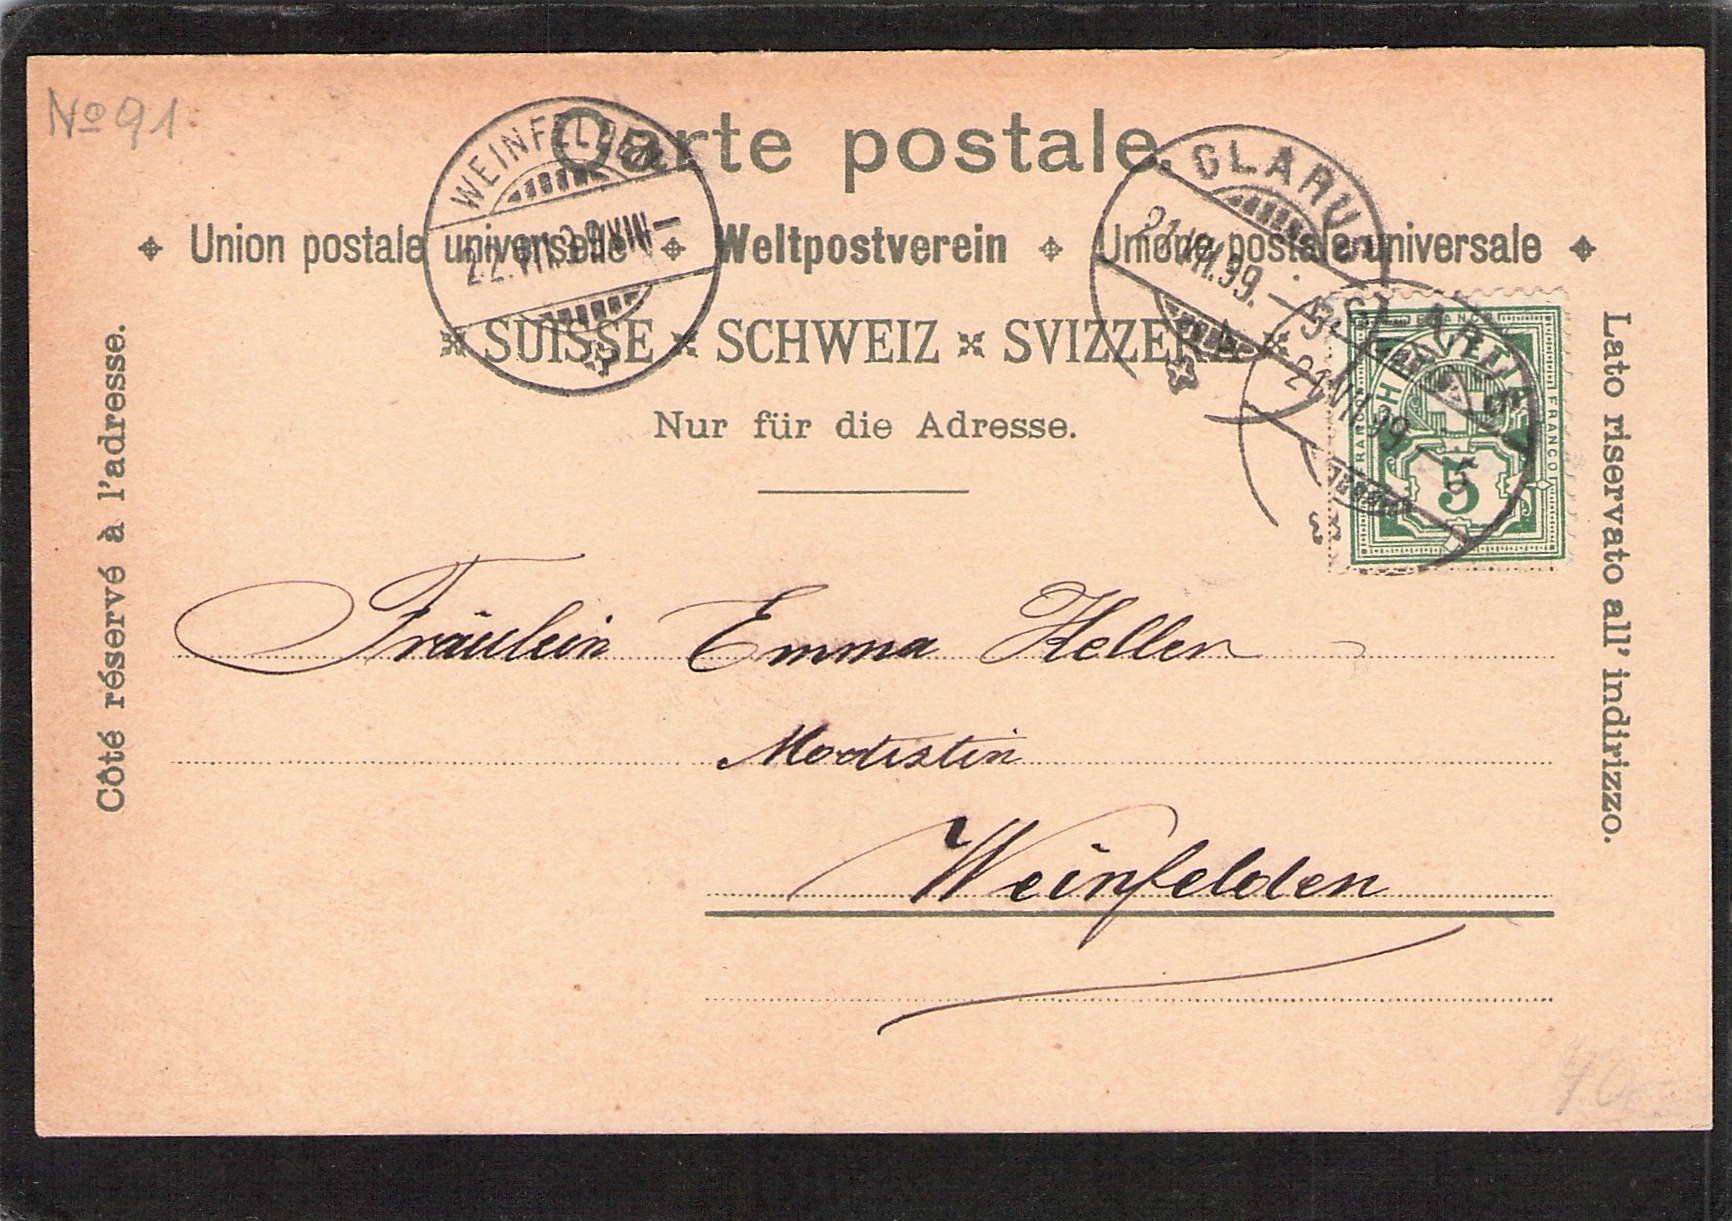 No 91.
Carte postale.
Union postale universelle Weltpostverein Unione postale universale
SUISSE SCHWEIZ SVIZZERA
Nur für die Adresse.
Côté réservé à l'adresse.
Lato riservato all' indirizzo.
WEINFELDEN
22.VII.99.VIII–
GLARUS
21.VII.99.–5
GLARUS
21.VII.99.–5
FRANCO
5
Fräulein Emma Keller
Modistin
Weinfelden